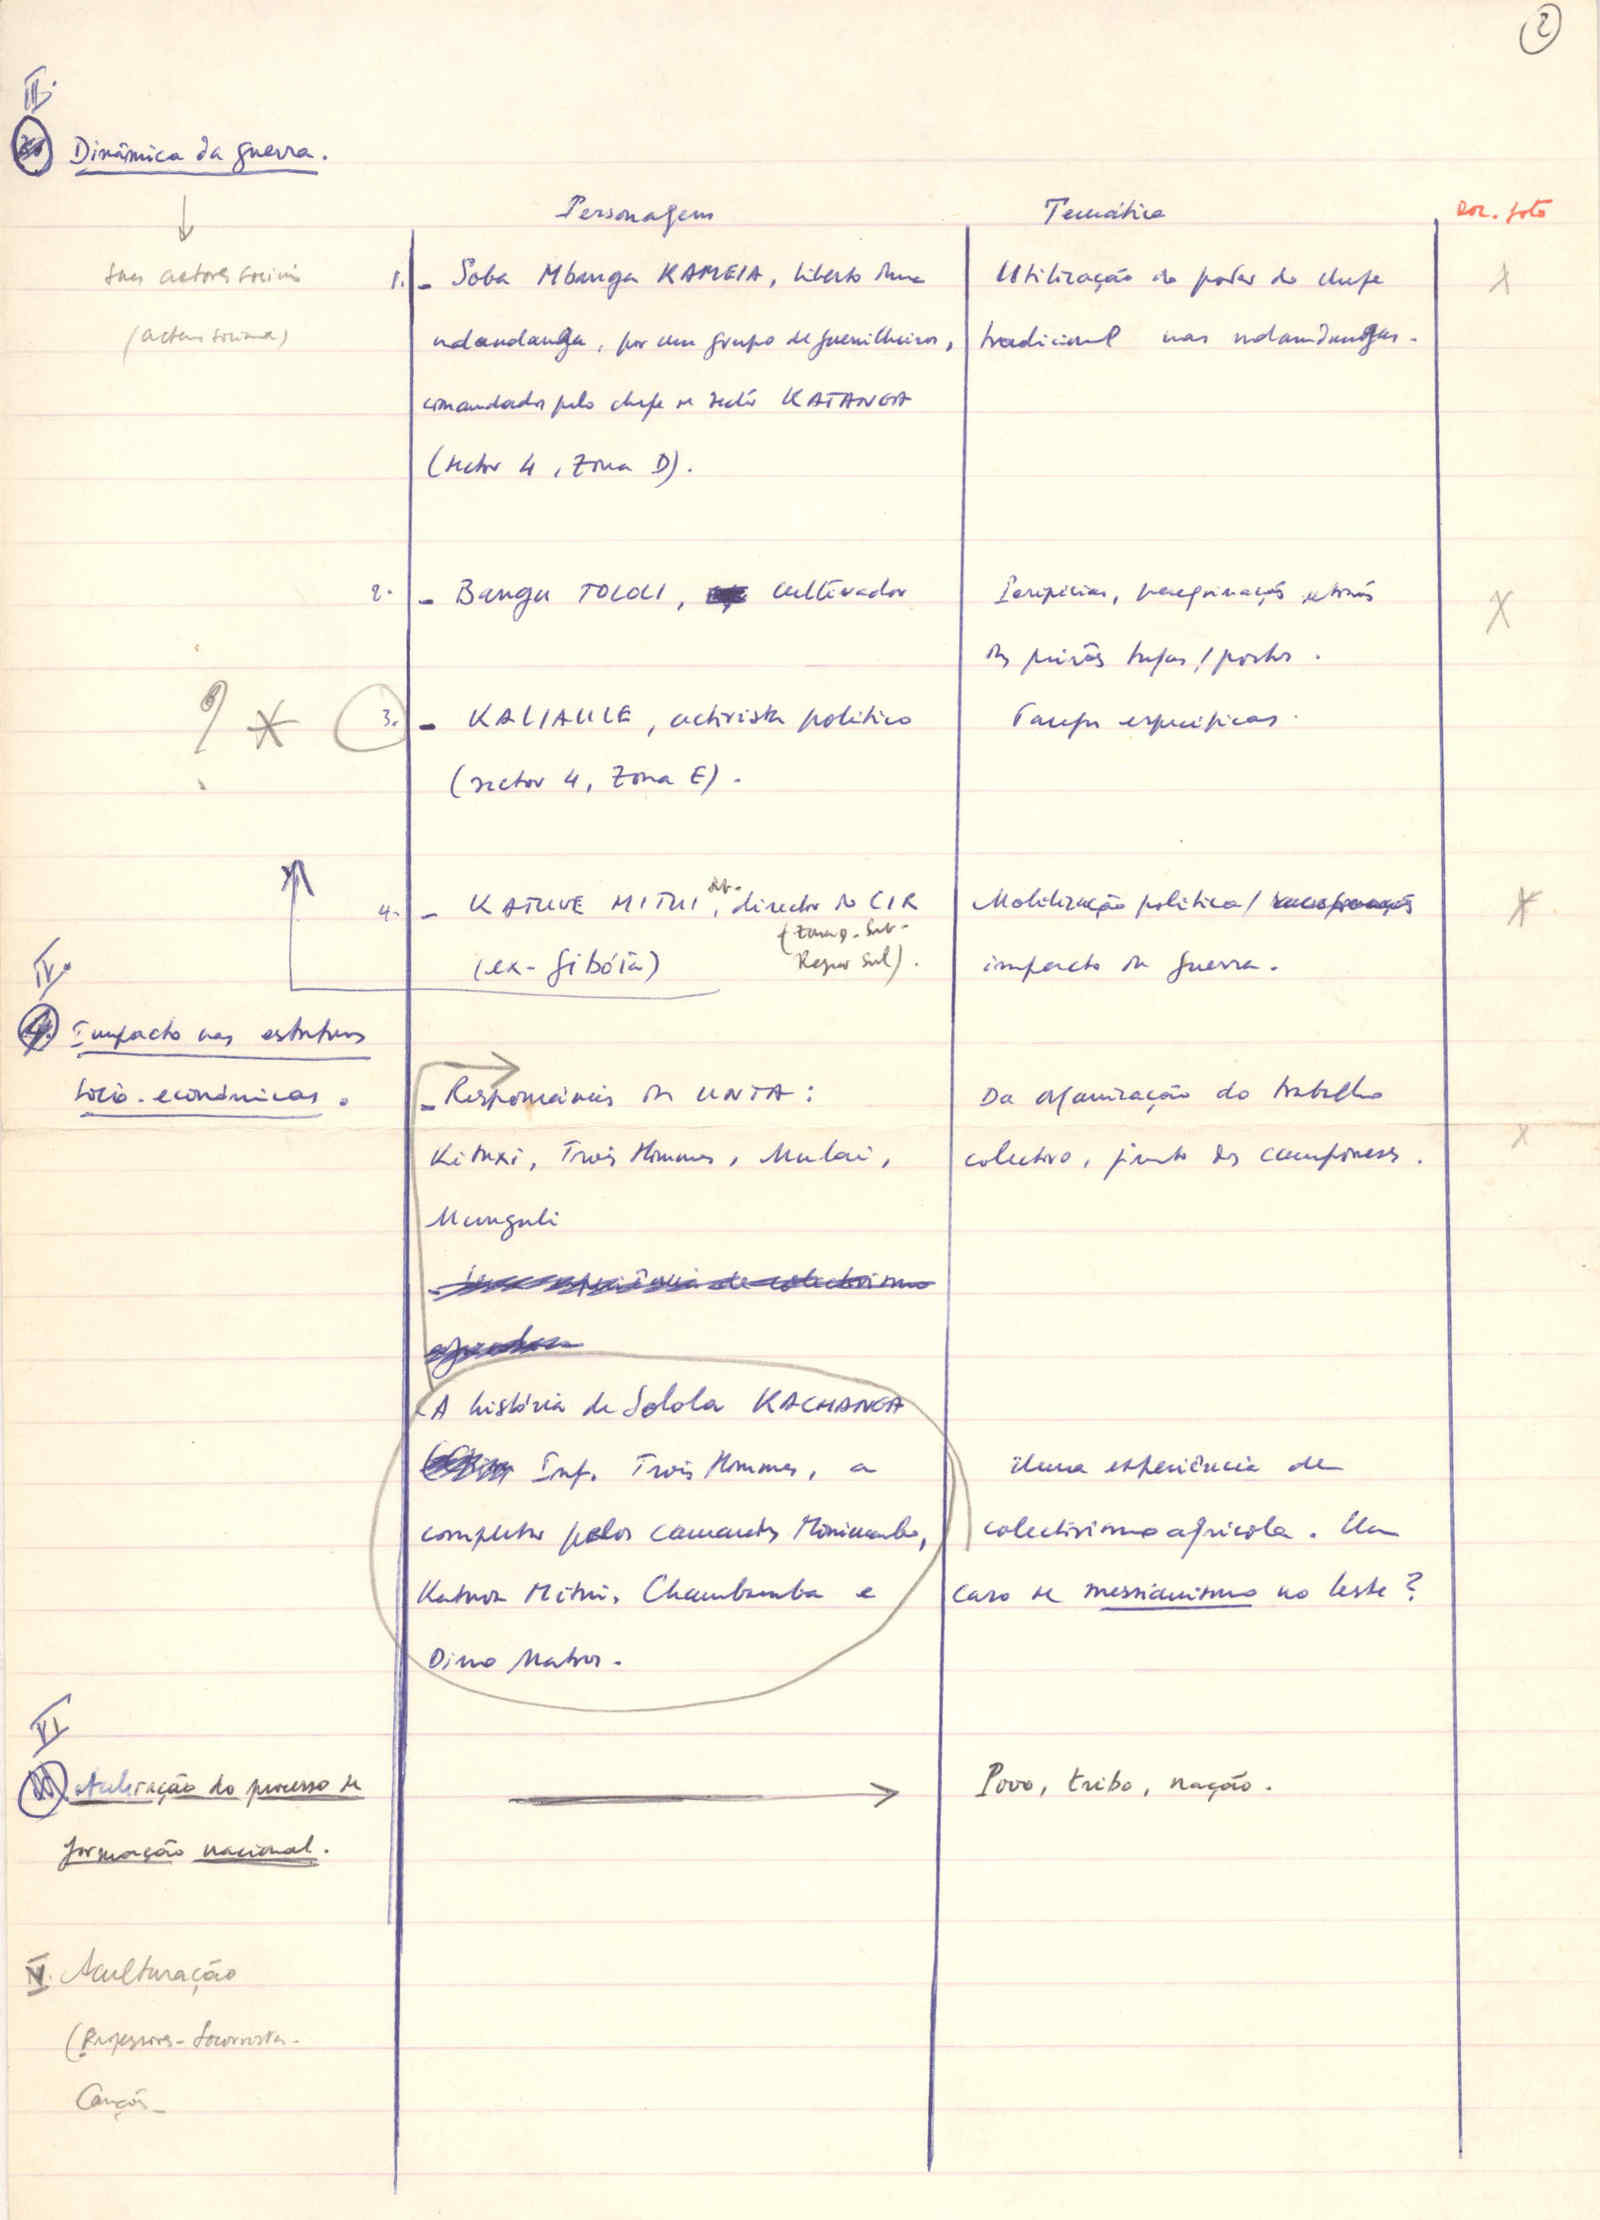 2
III.
Dinâmica da guerra.
Personagem
Temática
Doc. foto
seus actores sociais
(actores sociais)
1. - Soba Mbunga KAMEIA, liberto duma
ndandanga, por um grupo de guerrilheiros,
comandados pelo chefe de sector KATANGA
(sector 4, Zona D).
Utilização do poder do chefe
tradicional nas ndandangas.
X
2. - Bangu TOLOLI, cultivador
Peripécias, peregrinação através
das prisões tugas / postos.
X
? * 3. - KALIAULE, activista político
(sector 4, Zona E).
Tarefas específicas.
4. - KATUVE MITUI, director do CIR
(Zona D. Sub-
Região Sul).
(ex-Gibóia)
Mobilização política /
impacto da guerra.
X
IV.
4. Impacto nas estruturas
sócio-económicas.
- Responsáveis da UNTA:
Kituxi, Trois Hommes, Mulai,
Munguli
Da organização do trabalho
colectivo, junto dos camponeses.
X
- uma experiência de colectivismo
agrícola
- A história de Solola KACHANGA
Inf. Trois Hommes, a
completar pelos camaradas
Katuva Mitui, Chambamba e
Dino Matros.
Uma experiência de
colectivismo agrícola. Um
caso de messianismo no leste?
VI
Aceleração do processo de
formação nacional.
Povo, tribo, nação.
V. Aculturação
(Professores - Socorristas -
Canções -